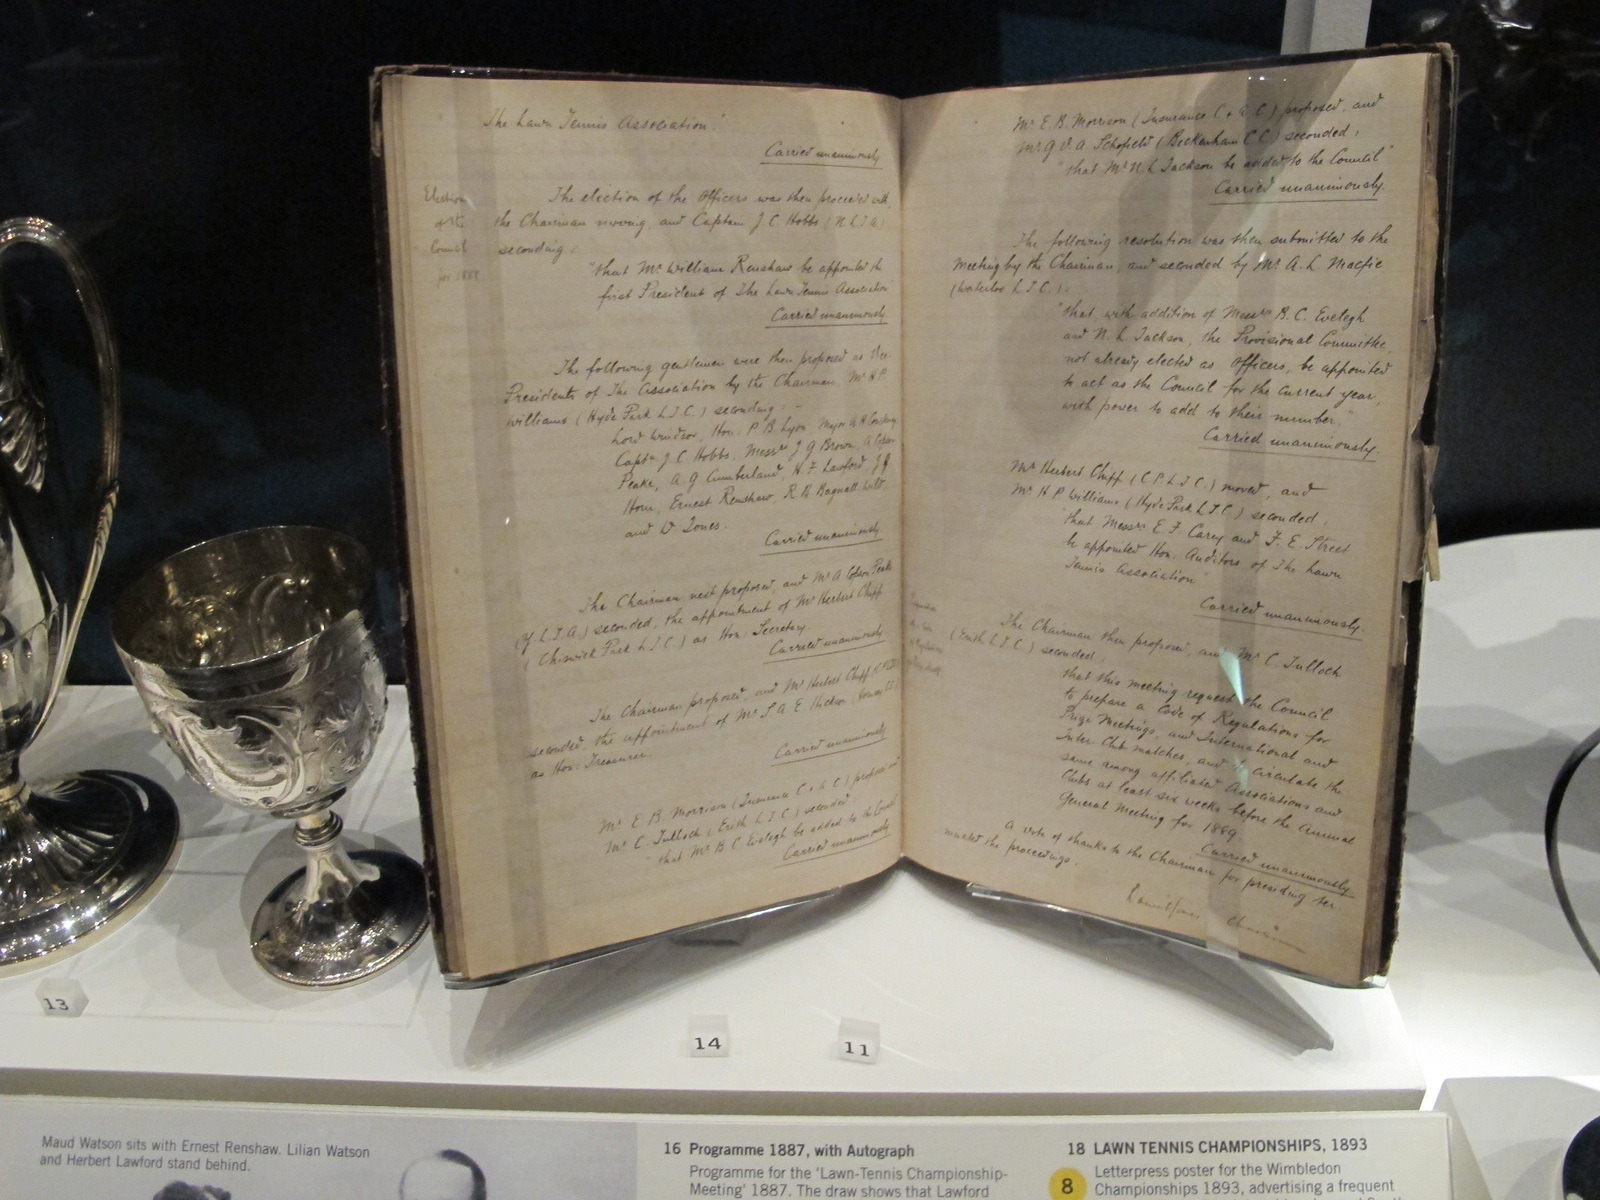 The Lawn Tennis Association"
Carried unanimously
Election
of the
Council
for 1888
The election of the Officers was then proceeded with,
the Chairman moving, and Captain J C Hobbs (N L T A)
seconding:
"that Mr William Renshaw be appointed the
first President of The Lawn Tennis Association
Carried unanimously
The following gentlemen were then proposed as Vice-
Presidents of The Association by the Chairman, Mr H P
Williams (Hyde Park L.T.C.) seconding:-
Lord Windsor, Hon: P B Lyon, Major A H
Captn J C Hobbs, Messrs J G Brown, A Copson
Peake, A. G Cumberland H. F Lawford, J G
Horn, Ernest Renshaw, R. B. Bagnall Wild
and W Jones.
Carried unanimously
The Chairman next proposed, and Mr A Copson Peake
(Y. L. T. A.) seconded, the appointment of Mr Herbert Chipp
(Chiswick Park L.T.C.) as Hon: Secretary.
Carried unanimously
The Chairman proposed, and Mr Herbert Chipp
seconded, the appointment of Mr
as Hon: Treasurer.
Carried unanimously
Mr E B Morrison (Insurance C & A C.) proposed and
Mr C. Tulloch (Erith L T C.) seconded:
"that Mr B C Evelegh be added to the Council
Carried unanimously
Mr E. B. Morrison (Insurance C. & A. C.) proposed, and
Mr G. A. Schofield (Beckenham C C) seconded,
"that Mr N. L Jackson be added to the Council"
Carried unanimously.
The following resolution was then submitted to the
Meeting by the Chairman, and seconded by Mr A. L. Macfie
(Waterloo L.T.C.):
"that, with addition of Messrs B. C. Evelegh
and N. L Jackson, the Provisional Committee,
not already elected as Officers, be appointed
to act as the Council for the current year,
with power to add to their number."
Carried unanimously.
Mr Herbert Chipp (C P L T C.) moved, and
Mr H P Williams (Hyde Park L T C) seconded.
"that Messrs E F Carey and F. E. Street
be appointed Hon. Auditors of The Lawn
Tennis Association"
Carried unanimously.
The Chairman then proposed, and Mr C. Tulloch
(Erith L.T C.) seconded.
that this meeting request the Council
to prepare a Code of Regulations for
Prize Meetings, and International and
Inter Club matches, and to circulate the
same among affiliated Associations and
Clubs at least six weeks before the Annual
General Meeting for 1889
Carried unanimously
A vote of thanks to the Chairman for presiding ter.
minated the proceedings.
Chairman
13
14
11
Maud Watson sits with Ernest Renshaw. Lilian Watson
and Herbert Lawford stand behind.
16 Programme 1887, with Autograph
Programme for the 'Lawn-Tennis Championship-
Meeting' 1887. The draw shows that Lawford
18 LAWN TENNIS CHAMPIONSHIPS, 1893
8
Letterpress poster for the Wimbledon
Championships 1893, advertising a frequent